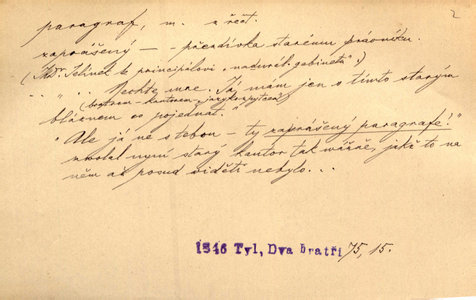 2
paragraf, m. z řečt.
zaprášený — - přezdívka starému právníku.
(JUDr. Jelínek k principálovi „
„ . . „ . . Nechte mne. Já mám jen s tímto starým
(doktorem - kantorem -
bláznem co pojednat."
„Ale já ne s tebou – ty zaprášený paragrafe!"
zvolal nyní starý kantor tak vážně, jaké to na
něm až posud viděti nebylo . . .
1846 Tyl, Dva bratři 75, 15.